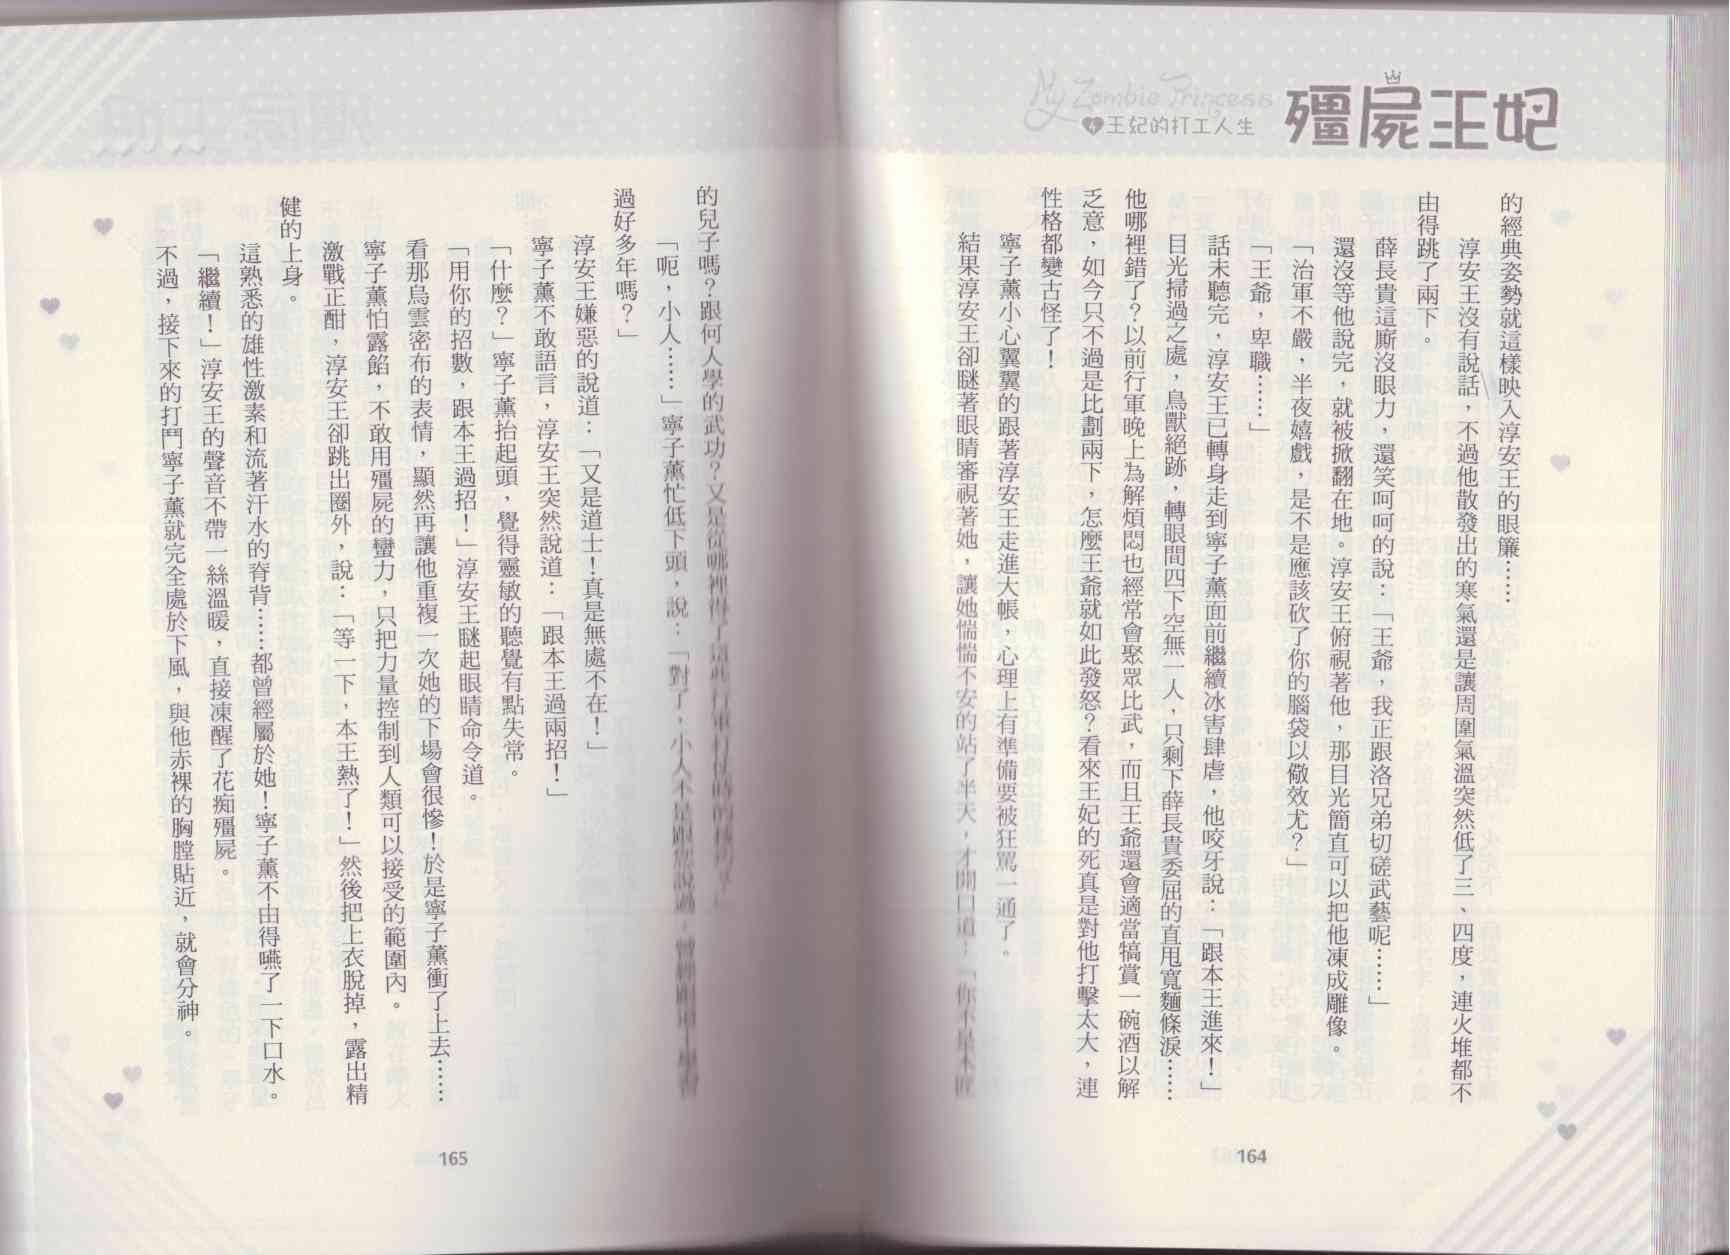 殭屍王妃
My Zombie Princess
4 王妃的打工人生
的經典姿勢就這樣映入淳安王的眼簾……
淳安王沒有說話，不過他散發出的寒氣還是讓周圍氣溫突然低了三、四度，連火堆都不
由得跳了兩下。
薛長貴這廝沒眼力，還笑呵呵的說：「王爺，我正跟洛兄弟切磋武藝呢……」
還沒等他說完，就被掀翻在地。淳安王俯視著他，那目光簡直可以把他凍成雕像。
「治軍不嚴，半夜嬉戲，是不是應該砍了你的腦袋以儆效尤？」
「王爺，卑職……」
話未聽完，淳安王已轉身走到寧子薰面前繼續冰害肆虐，他咬牙說：「跟本王進來！」
目光掃過之處，鳥獸絕跡，轉眼間四下空無一人，只剩下薛長貴委屈的直甩寬麵條淚……
他哪裡錯了？以前行軍晚上為解煩悶也經常會聚眾比武，而且王爺還會適當犒賞一碗酒以解
乏意，如今只不過是比劃兩下，怎麼王爺就如此發怒？看來王妃的死真是對他打擊太大，連
性格都變古怪了！
寧子薰小心翼翼的跟著淳安王走進大帳，心理上有準備要被狂罵一通了。
結果淳安王卻瞇著眼睛審視著她，讓她惴惴不安的站了半天，才開口道：「你不是木匠
164
的兒子嗎？跟何人學的武功？又是從哪裡得了這些行軍打仗時的技巧？」
「呃，小人……」寧子薰忙低下頭，說：「對了，小人不是跟您說過，曾經跟
過好多年嗎？」
淳安王嫌惡的說道：「又是道士！真是無處不在！」
寧子薰不敢語言，淳安王突然說道：「跟本王過兩招！」
「什麼？」寧子薰抬起頭，覺得靈敏的聽覺有點失常。
「用你的招數，跟本王過招！」淳安王瞇起眼睛命令道。
看那烏雲密布的表情，顯然再讓他重複一次她的下場會很慘！於是寧子薰衝了上去……
寧子薰怕露餡，不敢用殭屍的蠻力，只把力量控制到人類可以接受的範圍內。
激戰正酣，淳安王卻跳出圈外，說：「等一下，本王熱了！」然後把上衣脫掉，露出精
健的上身。
這熟悉的雄性激素和流著汗水的脊背……都曾經屬於她！寧子薰不由得嚥了一下口水。
「繼續！」淳安王的聲音不帶一絲溫暖，直接凍醒了花痴殭屍。
不過，接下來的打鬥寧子薰就完全處於下風，與他赤裸的胸膛貼近，就會分神。
165